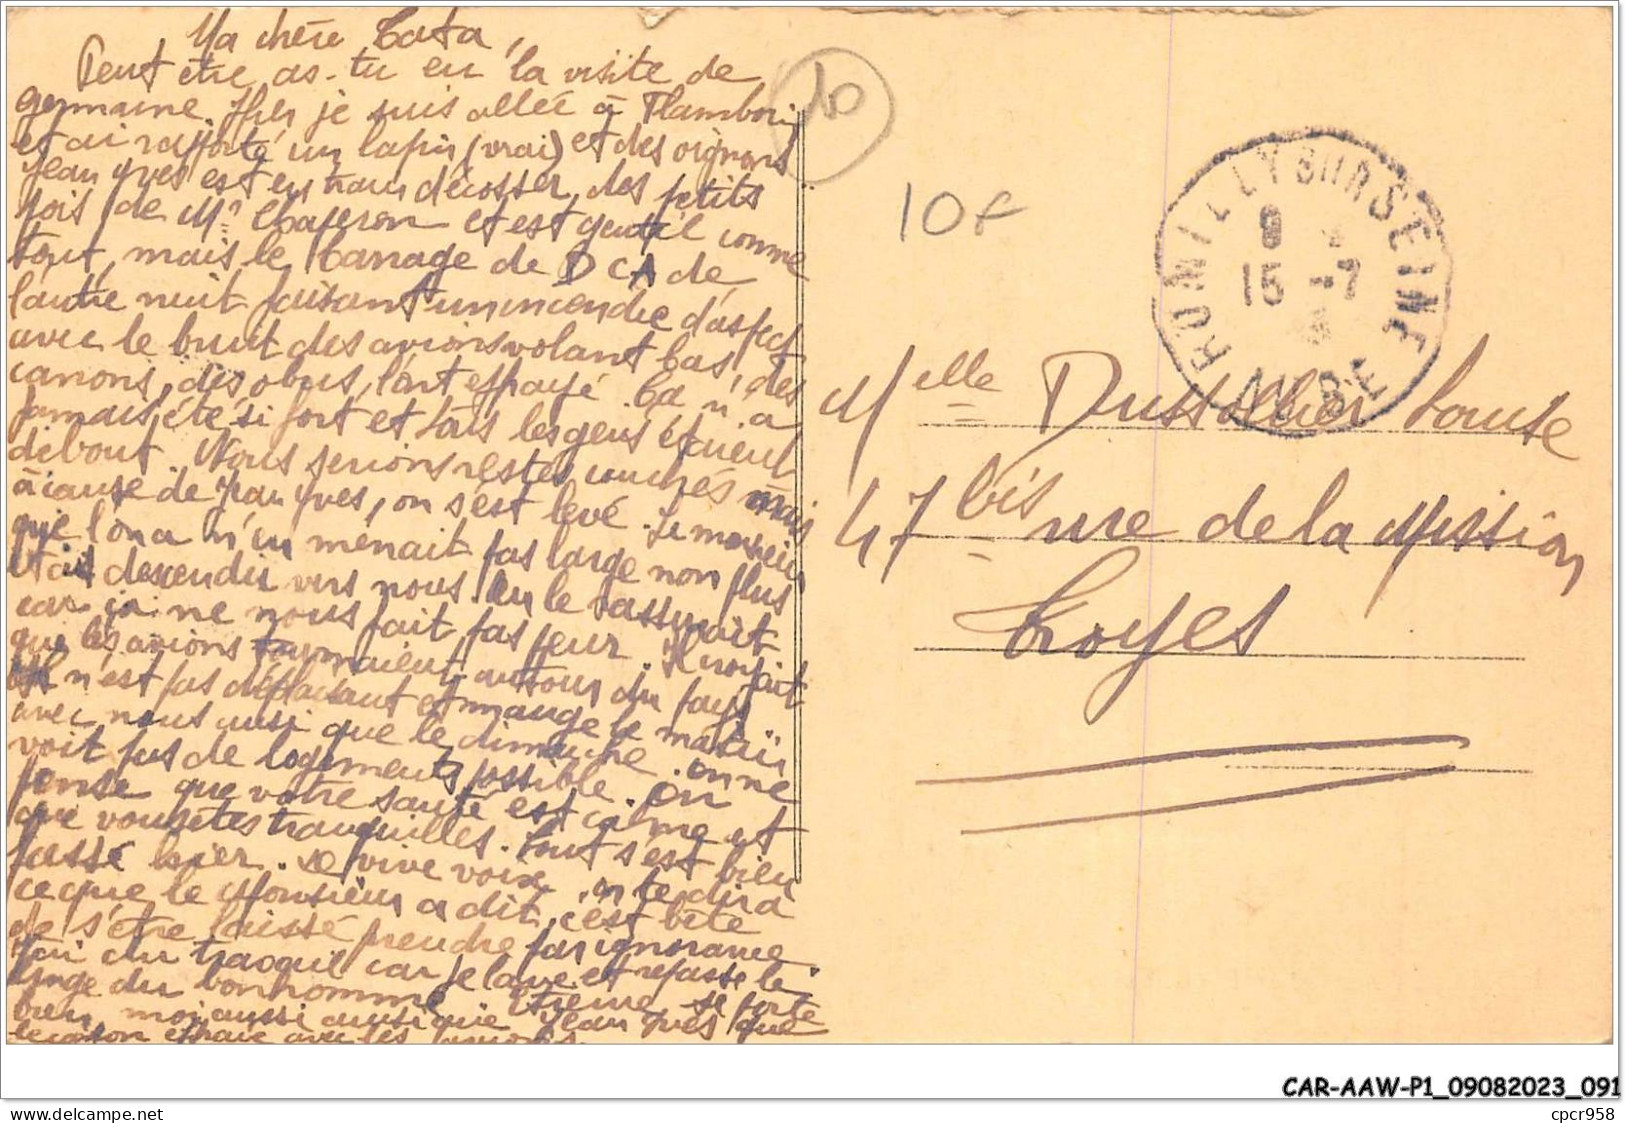 Ma chère Tata,
Peut être as-tu eu la visite de
germaine. Hier je suis allée à Flamboin
et ai rapporté un lapin (vrai) et des oignons
Jean Yves est en train d'écosser des petits
pois de Mr Chaperon et est gentil comme
tout, mais le barrage de DCA de
l'autre nuit faisant un incendie d'aspect
avec le bruit des avions volant bas, des
canons, des obus, l'ont effrayé. Ça n'a
jamais été si fort et tous les gens étaient
debout. Nous serions restés couchés mais
à cause de Jean Yves, on s'est levé. Le monsieur
que l'on a n'en menait pas large non plus
était descendu vers nous. On le rassurait
car ça ne nous fait pas peur. Il croyait
que les avions tournaient autour du pays
Il n'est pas déplaisant et mange le matin
avec nous ainsi que le dimanche. On ne
voit pas de logements possible. On
pense que votre santé est calme et
que vous êtes tranquilles. Tout s'est bien
passé hier. De vive voix, on te dira
ce que le Monsieur a dit, c'est bête
de s'être laissé prendre par ignorance
J'ai du tracquil car je lave et repasse le
linge du bonhomme. Etienne se porte
bien, moi aussi ainsi que Jean Yves que
le canon effraie avec ses avions.
10
10F
ROMILLY SUR SEINE
AUBE
8
15 -7
Melle Dussollier Louise
47 bis rue de la Mission
Troyes
CAR-AAW-P1_09082023_091
cpcr958